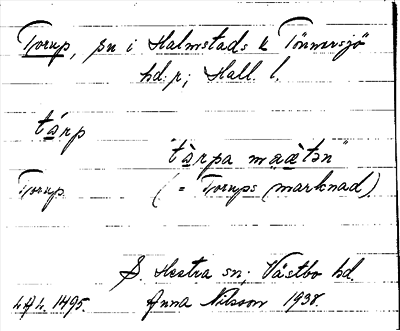 Torup, sn i Halmstads k Tönnersjö
hd:r; Hall. l.
tárp
"tàrpa maàtən"
Torup. (= Torups marknad).
S. Hestra sn, Västbo hd.
LAL. 1495. Anna Nilsson 1938.